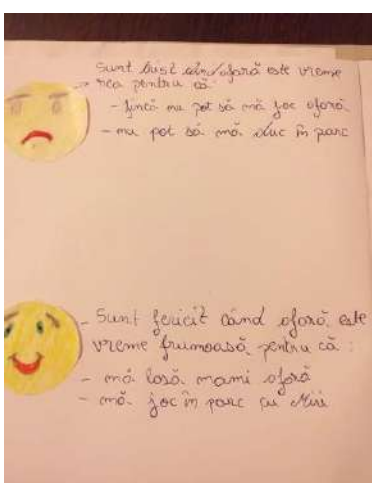 Sunt trist când afară este vreme
rea pentru că
- fincă nu pot să mă joc afară
- nu pot să mă duc în parc
- Sunt fericit când afară este
vreme frumoasă pentru că :
- mă lasă mami afară
- mă joc în parc cu